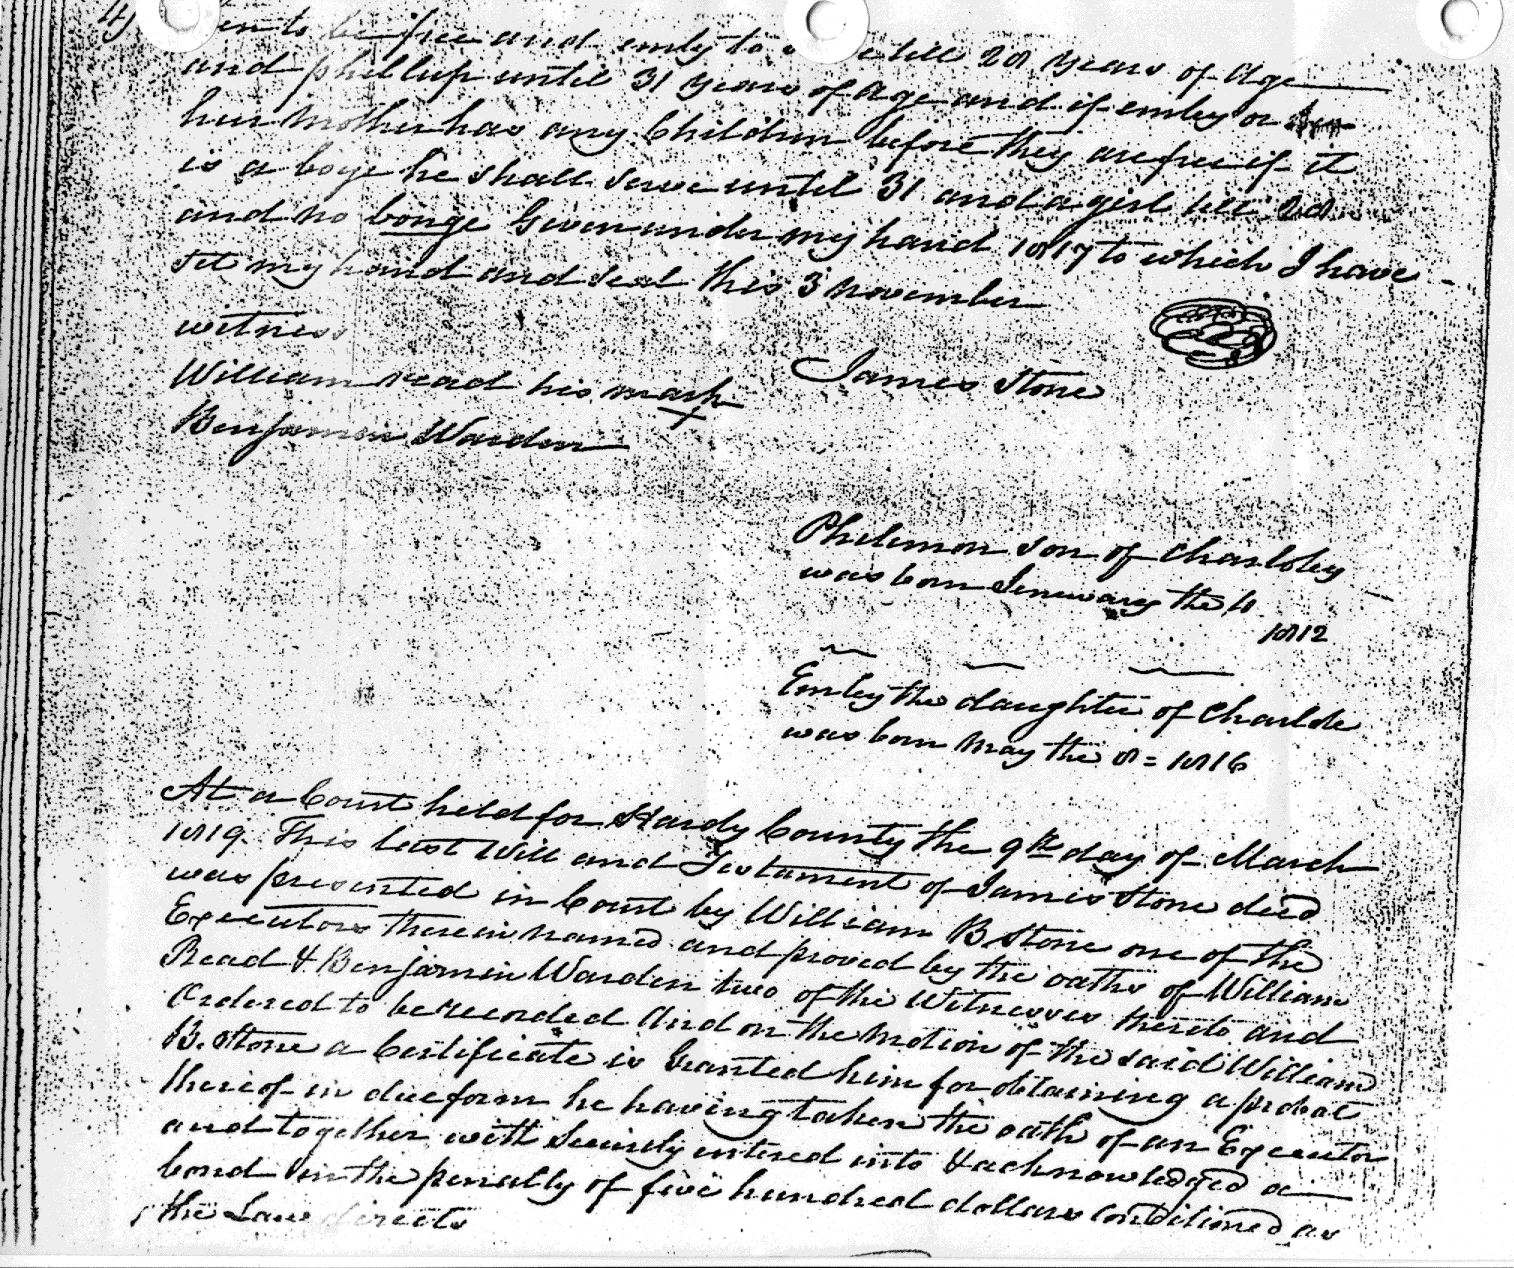 to be free and emly to till 28 years of age
and phillip until 31 years of age and if emley or
her mother has any Children before they are free if it
is a boye he shall serve until 31 and a girl till 28
and no longe Given under my hand 1817 to which I have
set my hand and seal this 3 november
witness
William read his mark
X
James Stone
Benjamin Warden
Philemon son of Charlotey
was born Jenewary the
1812
Emley the daughter of Charlote
was born may the 8 = 1816
At a Court held for Hardy County the 9th day of March
1819. This last Will and Testament of James Stone decd
was presented in Court by William B Stone one of the
Executors therein named and proved by the oaths of William
Read & Benjamin Warden two of the Witnesses thereto and
Ordered to be recorded And on the motion of the said William
B. Stone a Certificate is Granted him for obtaining a probat
thereof in due form he having taken the oath of an Executor
and together with Security entered into & acknowledged a
bond in the penalty of five hundred dollars Conditioned as
the Law directs